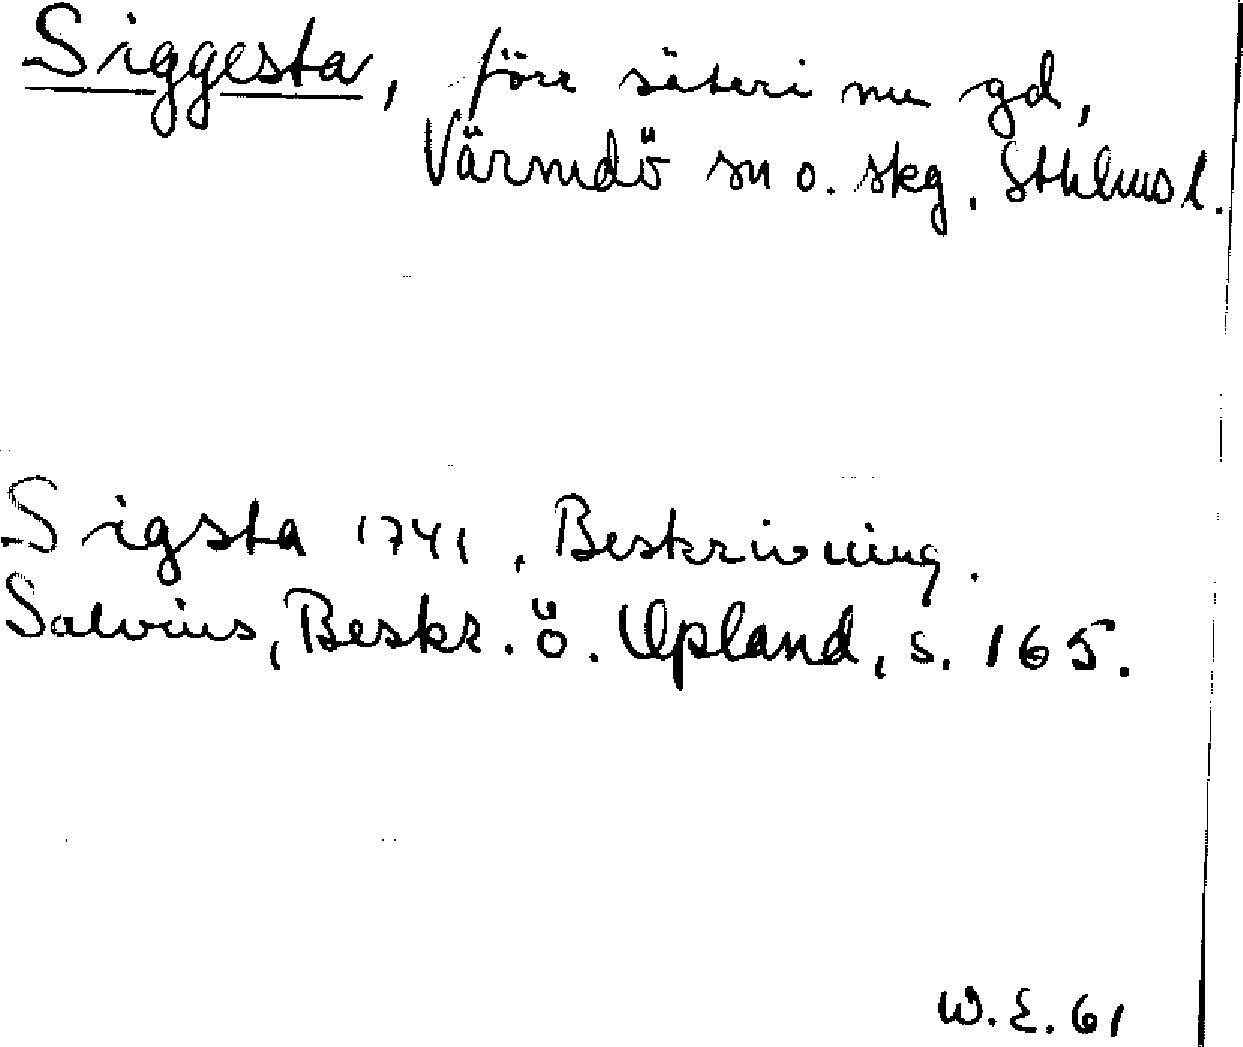 Siggesta, förr säteri nu gd,
Värmdö sn o. skg, Sthlms l.
Sigsta 1741, Beskrivning.
Salvius, Beskr. ö. Upland, s. 165.
W.E. 61